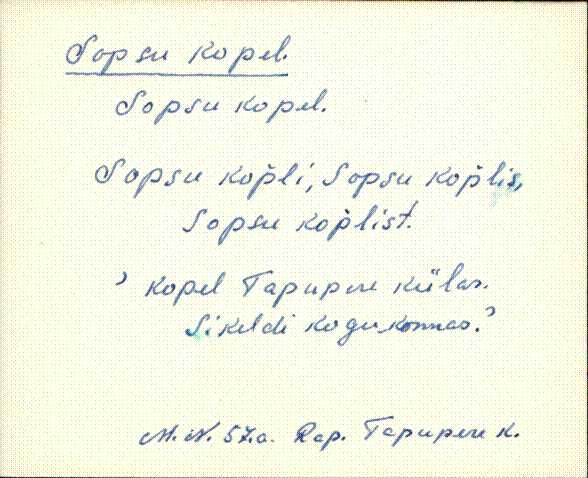 Sopsu kopel.
Sopsu kopel.
Sopsu kop̆li, Sopsu kop̆lis,
Sopsu kop̆list.
’ kopel Tapupere külas.
Sikeldi kogukonnas.’
M.N. 57.a. Rap. Tapupere k.